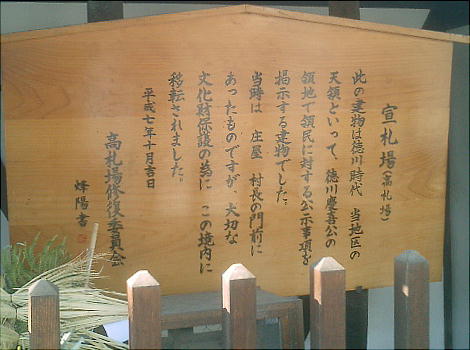 宣札場(高札場)
此の建物は徳川時代 当地区の
天領といって、徳川慶喜公の
領地で領民に対する公示事項を
掲示する建物でした。
当時は 庄屋 村長の門前に
あったものですが、大切な
文化財保護の為に この境内に
移転されました。
平成七年十月吉日
高札場修復委員会
烽陽書